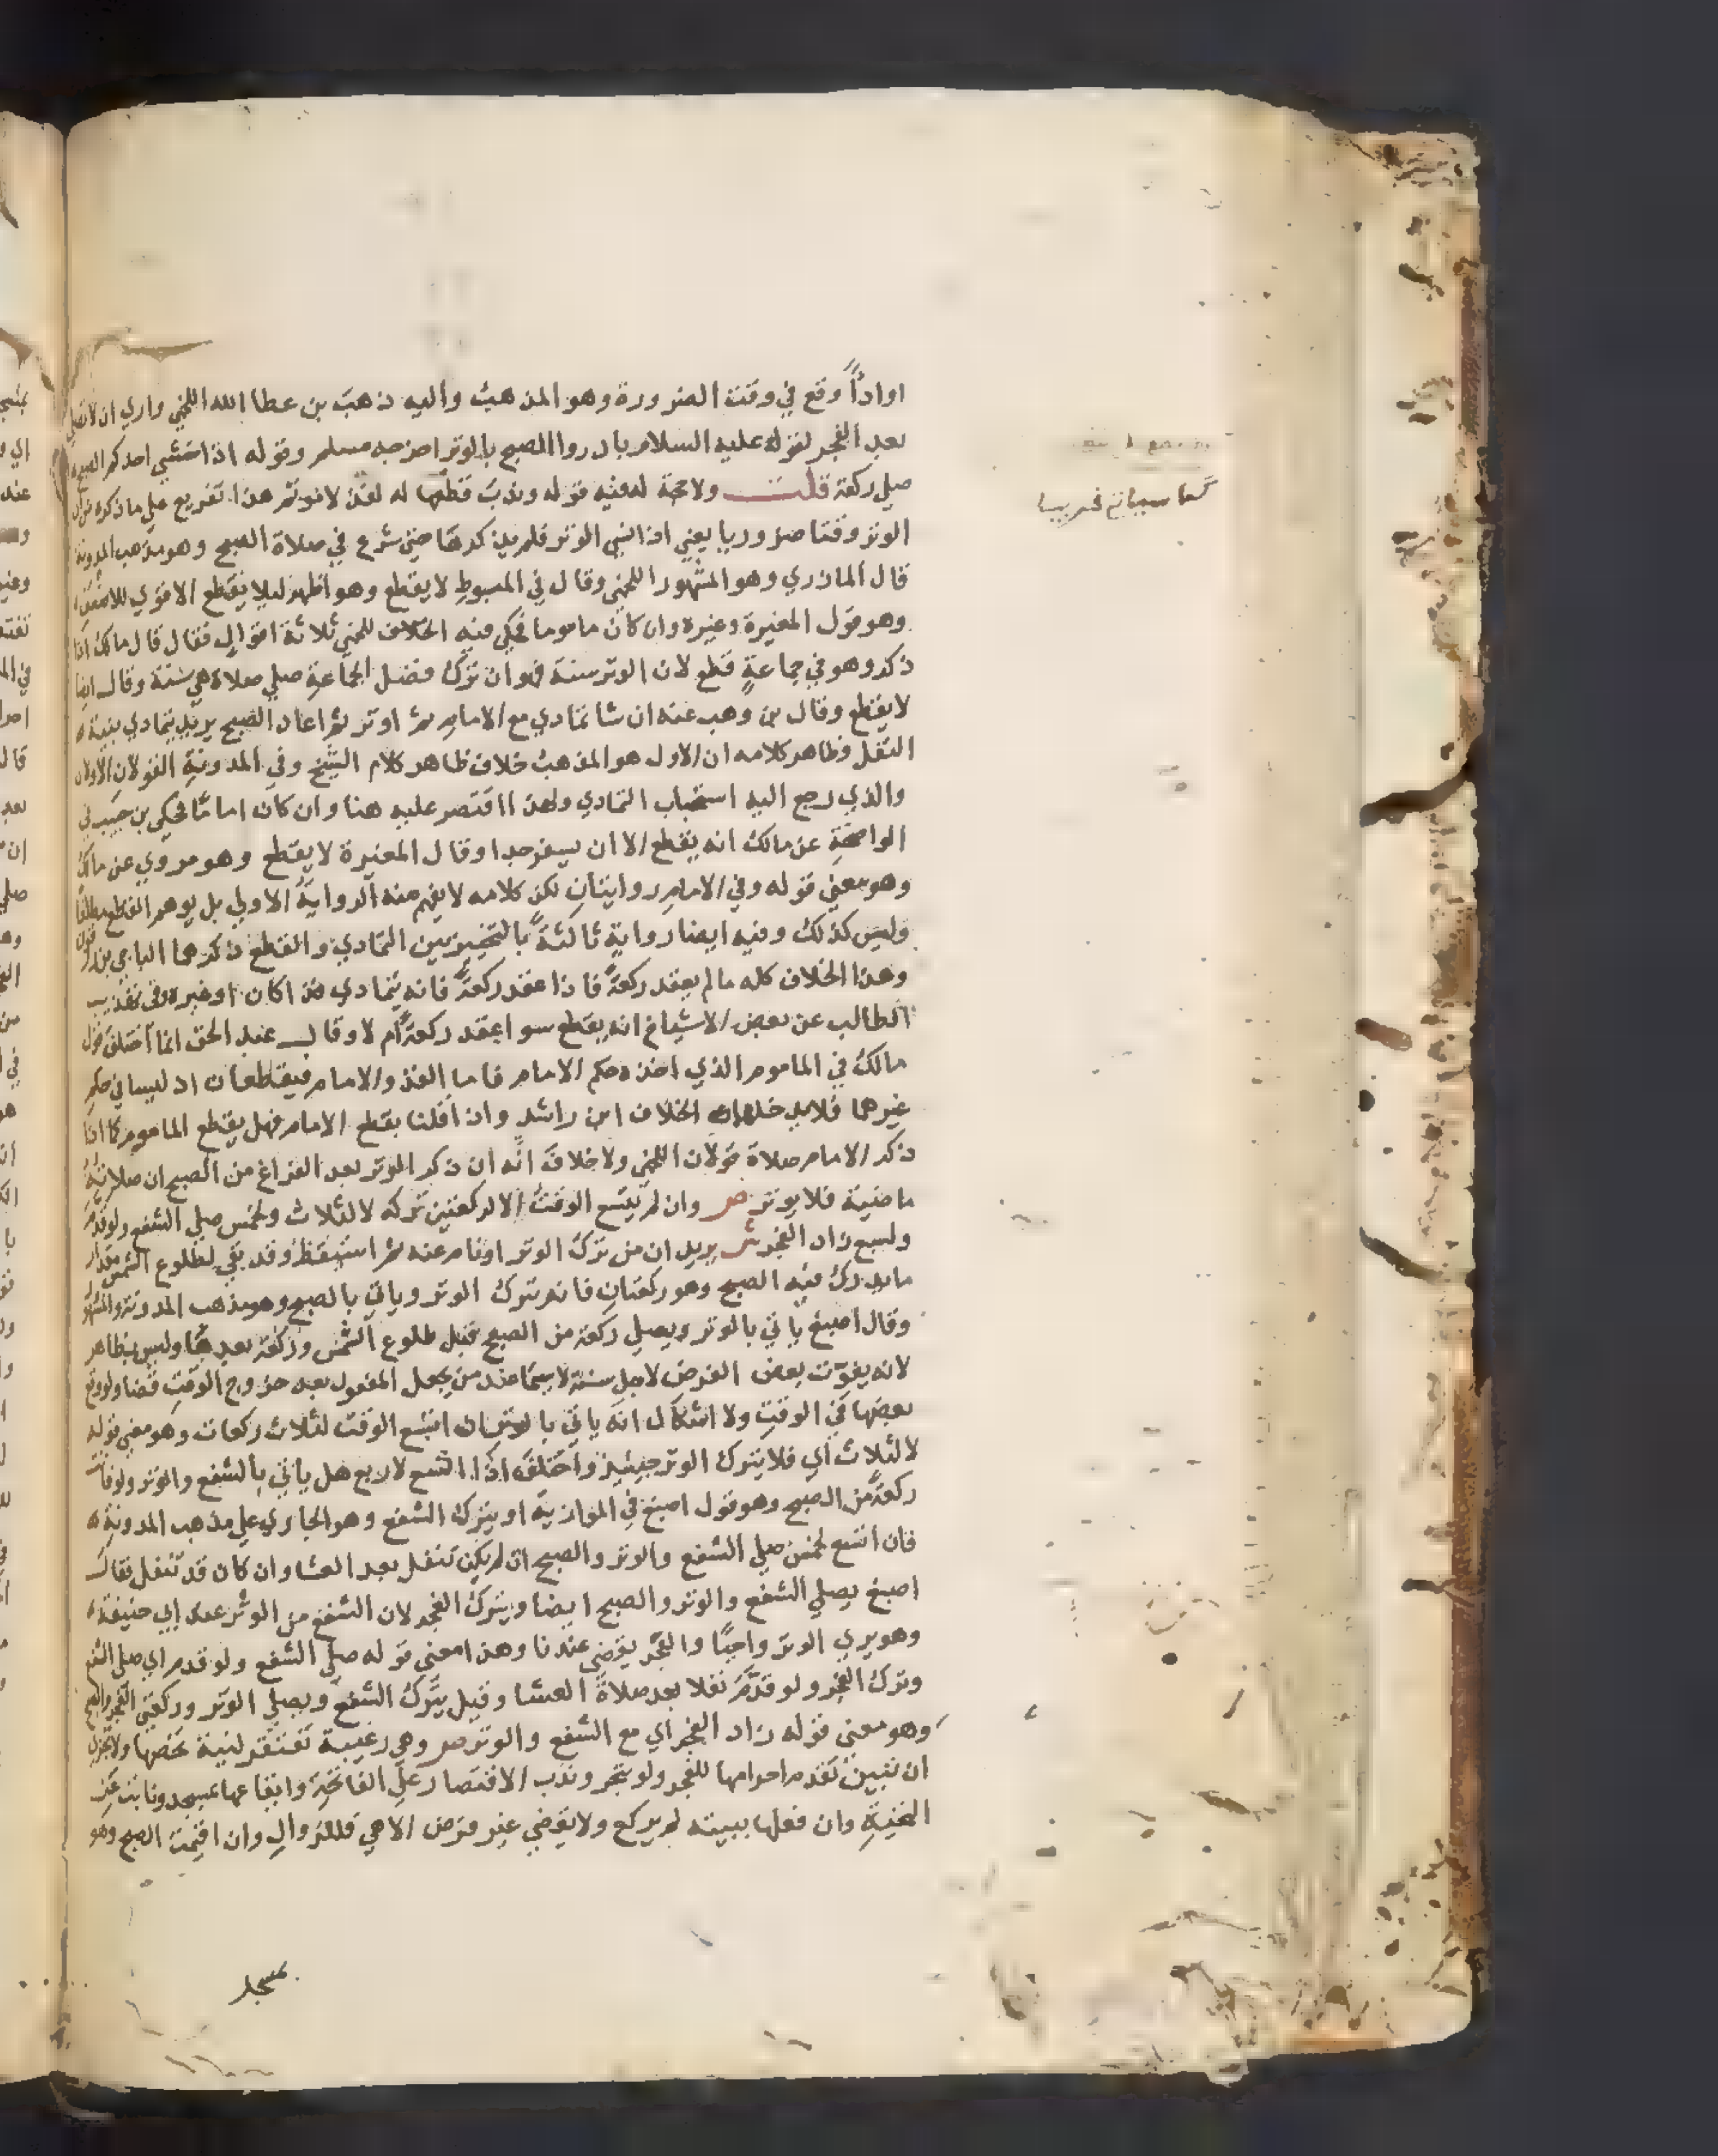 اواداً وقع في وقت الضرورة وهو المذهب واليه ذهب بن عطا الله اللخمي واري ان لا تصلي
بعد الفجر لقوله عليه السلام بادروا الصبح بالوتر اخرجه مسلم وقوله اذا خشي احدكم الصبح
صلي ركعة قلت ولا حجة له فيه قوله وندب قطعها له لفذ لا موتم هذا تفريع علي ما ذكره من ان
الوتر وقتا ضروريا يعني اذا نسي الوتر فلم يذكرها حتي شرع في صلاة الصبح وهو مذهب المدونة
قال المازري وهو المشهور اللخمي وقال في المبسوط لا يقطع وهو اظهر ليلا يقطع الاقوي للاضعف
وهو قول المغيرة وغيره وان كان ماموما فحكي فيه الخلاف للخمي ثلاثة اقوال فقال قال مالك اذا
ذكر وهو في جماعة قطع لان الوتر سنة فهو ان ترك فضل الجماعة صلي صلاة هي سنة وقال ايضا
لا يقطع وقال بن وهب عنه ان شا تمادي مع الامام ثم اوتر ثم اعاد الصبح يريد يتمادي بنية
النفل وظاهر كلامه ان الاول هو المذهب خلاف ظاهر كلام الشيخ وفي المدونة القولان الاولان
والذي رجع اليه استحباب التمادي ولهذا اقتصر عليه هنا وان كان اماما فحكي بن حبيب في
الواضحة عن مالك انه يقطع الا ان يسفر جدا وقال المغيرة لا يقطع وهو مروي عن مالك
وهو معني قوله وفي الامام روايتان لكن كلامه لا يفهم منه الرواية الاولي بل يوهم القطع مطلقا
وليس كذلك وفيه ايضا رواية ثالثة بالتخيير بين التمادي والقطع ذكرها الباجي بن زرقون
وهذا الخلاف كله ما لم يعقد ركعة فاذا عقد ركعة فانه يتمادي فذا كان او غيره وفي تهذيب
الطالب عن بعض الاشياخ انه يقطع سوا عقد ركعة ام لا وقال عبد الحق انما اختلف قول
مالك في الماموم الذي اخذ حكم الامام فاما الفذ والامام فيقطعان اذ ليسا في حكم
غيرهما فلا يدخلهما الخلاف ابن راشد واذا قلنا بقطع الامام فهل يقطع الماموم كما اذا
ذكر الامام صلاة قولان اللخمي ولا خلاف انه ان ذكر الوتر بعد الفراغ من الصبح ان صلاته
ماضية فلا يوتر ص وان لم يتسع الوقت الا لركعتين تركه لا لثلاث ولخمس صلي الشفع ولو قدم
ولسبع زاد الفجر ش يريد ان من ترك الوتر او نام عنه ثم استيقظ وقد بقي لطلوع الشمس مقدار
ما يدرك فيه الصبح وهو ركعتان فانه يترك الوتر وياتي بالصبح وهو مذهب المدونة والمشهور
وقال اصبغ ياتي بالوتر ويصلي ركعة من الصبح قبل طلوع الشمس وركعة بعدها وليس بظاهر
لانه يفوت بعض الفرض لاجل سنة لا سيما عند من يجعل المفعول بعد خروج الوقت قضا ولو وقع
بعضها في الوقت ولا اشكال انه ياتي بالوتر ان اتسع الوقت لثلاث ركعات وهو معني قوله
لا لثلاث اي فلا يترك الوتر حينيذ واختلف اذا اتسع لاربع هل ياتي بالشفع والوتر ولو فاتت
ركعة من الصبح وهو قول اصبغ في الموازية او يترك الشفع وهو الجاري علي مذهب المدونة
فان اتسع لخمس صلي الشفع والوتر والصبح ان لم يكن تنفل بعد العشا وان كان قد تنفل فقال
اصبغ يصلي الشفع والوتر والصبح ايضا ويترك الفجر لان الشفع من الوتر عند ابي حنيفة
وهو يري الوتر واجبا والفجر يقضي عندنا وهذا معني قوله صلي الشفع ولو قدم اي صلي الشفع
وترك الفجر ولو قدم نفلا بعد صلاة العشا وقيل يترك الشفع ويصلي الوتر وركعتي الفجر والصبح
وهو معني قوله زاد الفجر اي مع الشفع والوتر ص وهي رغيبة تفتقر لنية تخصها ولا تجزي
ان تبين تقدم احرامها للفجر ولو بتحر وندب الاقتصار علي الفاتحة وايقاعها بمسجد ونابت عن
التحية وان فعلها ببيته لم يركع ولا يقضي غير فرض الا هي فللزوال وان اقيمت الصبح وهو
بمسجد
كما سياتي قريبا